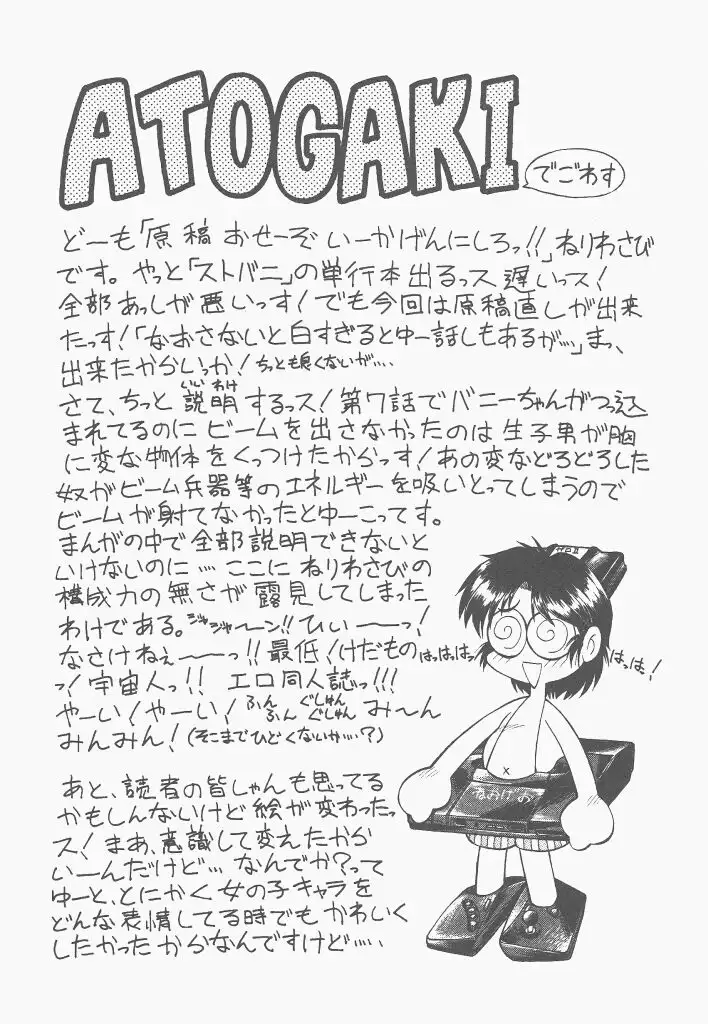 ATOGAKI
でごわす
どーも「原稿おせーぞいーかげんにしろっ!!」ねりわさび
です。やっと「ストバニ」の単行本出るっス遅いっス!
全部あっしが悪いっす!でも今回は原稿直しが出来
たっす!「なおさないと白すぎるとゆー話しもあるが…」まっ、
出来たからいっか!ちっとも良くないが….
いいわけ
さて、ちっと説明するっス!第7話でバニーちゃんがつっ込
まれてるのにビームを出さなかったのは生子男が胸
に変な物体をくっつけたからっす!あの変などろどろした
奴がビーム兵器等のエネルギーを吸いとってしまうので
ビームが射てなかったとゆーこってす。
まんがの中で全部説明できないと
いけないのに…ここにねりわさびの
構成力の無さが露見してしまった
わけである。ジャジャーーン!!ひぃ〜〜っ!
なさけねぇ〜〜っ!!最低!けだもの
っ!宇宙人っ!!エロ同人誌っ!!!
やーい!やーい!ふんふんぐしゅんぐしゅんみ〜ん
みんみん!(そこまでひどくないか…?)
はっはっはっ
はっは!
ねおげお
あと、読者の皆しゃんも思ってる
かもしんないけど絵が変わったっ
ス!まあ、意識して変えたから
いーんだけど…なんでか?って
ゆーと、とにかく女の子キャラを
どんな表情してる時でもかわいく
したかったからなんですけど…..